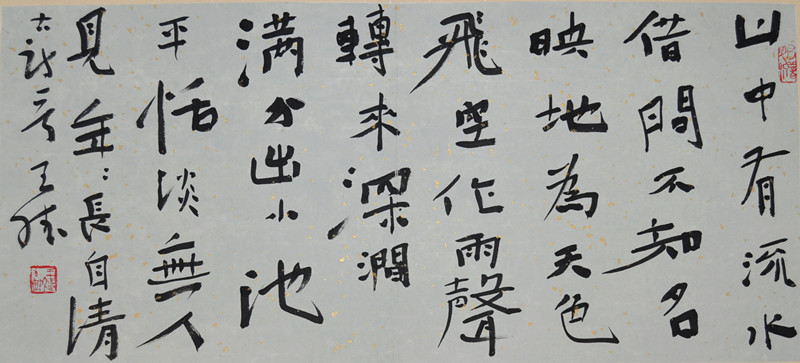 山中有流水
借問不知名
映地為天色
飛空作雨聲
轉來深澗
满分出小池
平恬淡無人
見年〻長自清
古诗一首